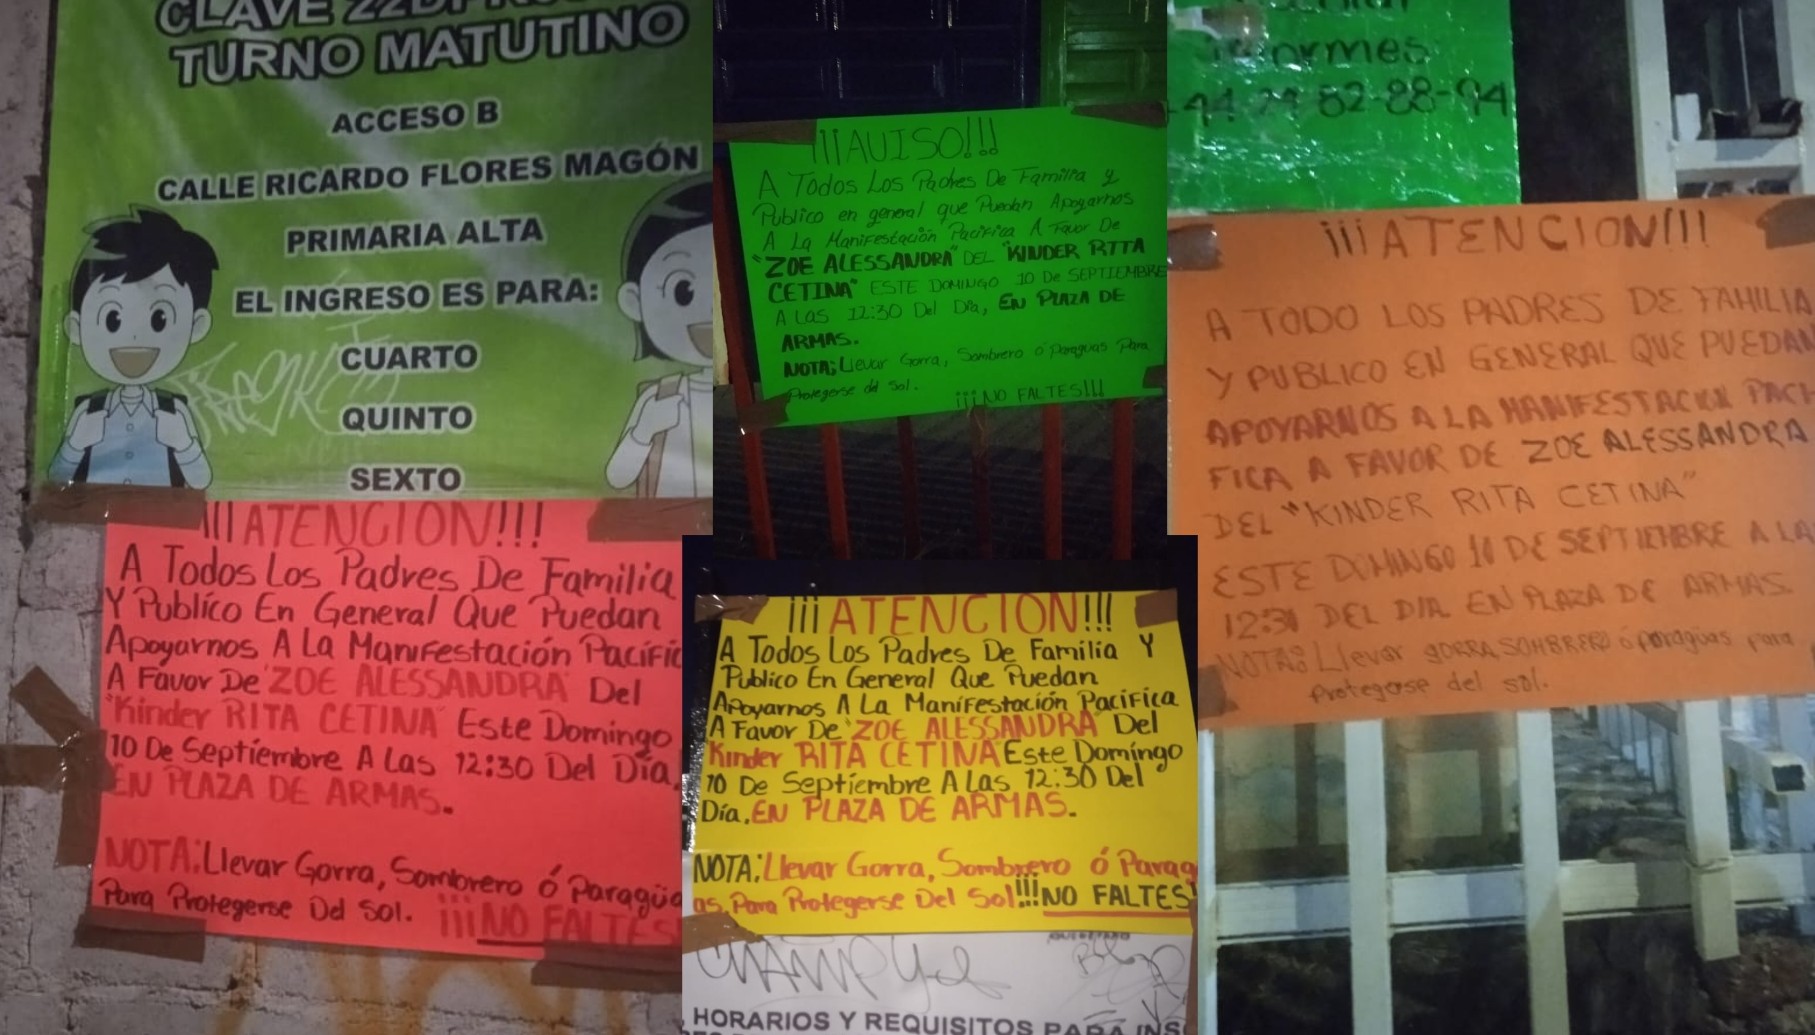 TURNO MATUTINO
ACCESO B
CALLE RICARDO FLORES MAGÓN
PRIMARIA ALTA
EL INGRESO ES PARA:
CUARTO
QUINTO
SEXTO
¡¡¡ATENCION!!!
A Todos Los Padres De Familia
Y Publíco En General Que Puedan
Apoyarnos A La Manifestación Pacífic
A Favor De "ZOE ALESSANDRA" Del
"Kinder RITA CETINA" Este Domingo
10 De Septiembre A Las 12:30 Del Día.
EN PLAZA DE ARMAS.
NOTA: Llevar Gorra, Sombrero ó Paragüa
Para Protegerse Del Sol. ¡¡¡NO FALTES
¡¡¡AUISO!!!
A Todos Los Padres De Familia y
Publico en general que Puedan Apoyarnos
A La Manifestación Pacifica A Favor De
"ZOE ALESSANDRA" DEL "KINDER RITA
CETINA" ESTE DOMINGO 10 De SEPTIEMBRE
A Las 12:30 Del Día, EN PLAZA DE
ARMAS.
NOTA; Llevar Gorra, Sombrero ó Paraguas Para
Protegerse del Sol. ¡¡¡NO FALTES!!!
¡¡¡ATENCION!!!
A Todos Los Padres De Familia Y
Publico En General Que Puedan
Apoyarnos A La Manifestación Pacifica
A Favor De "ZOE ALESSANDRA" Del
Kinder RITA CETINA Este Domingo
10 De Septiembre A Las 12:30 Del
Día. EN PLAZA DE ARMAS.
NOTA: Llevar Gorra, Sombrero ó Parag
as. Para Protegerse Del Sol!!! NO FALTES
HORARIOS Y REQUISITOS PARA INS
44-24-52-88-94
¡¡¡ATENCION!!!
A TODO LOS PADRES DE FAMILIA
Y PUBLICO EN GENERAL QUE PUEDAN
APOYARNOS A LA MANIFESTACION PACI
FICA A FAVOR DE ZOE ALESSANDRA
DEL "KINDER RITA CETINA"
ESTE DOMINGO 10 DE SEPTIEMBRE A LA
12:30 DEL DIA EN PLAZA DE ARMAS.
NOTA: Llevar GORRA, SOMBRERO ó paragüas para
protegerse del sol.